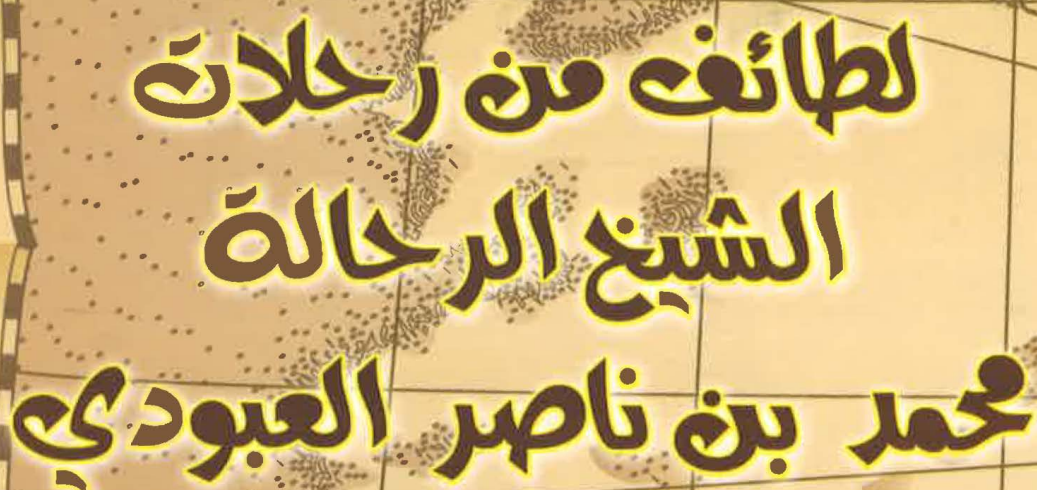 لطائف من رحلات
الشيخ الرحالة
محمد بن ناصر العبودي